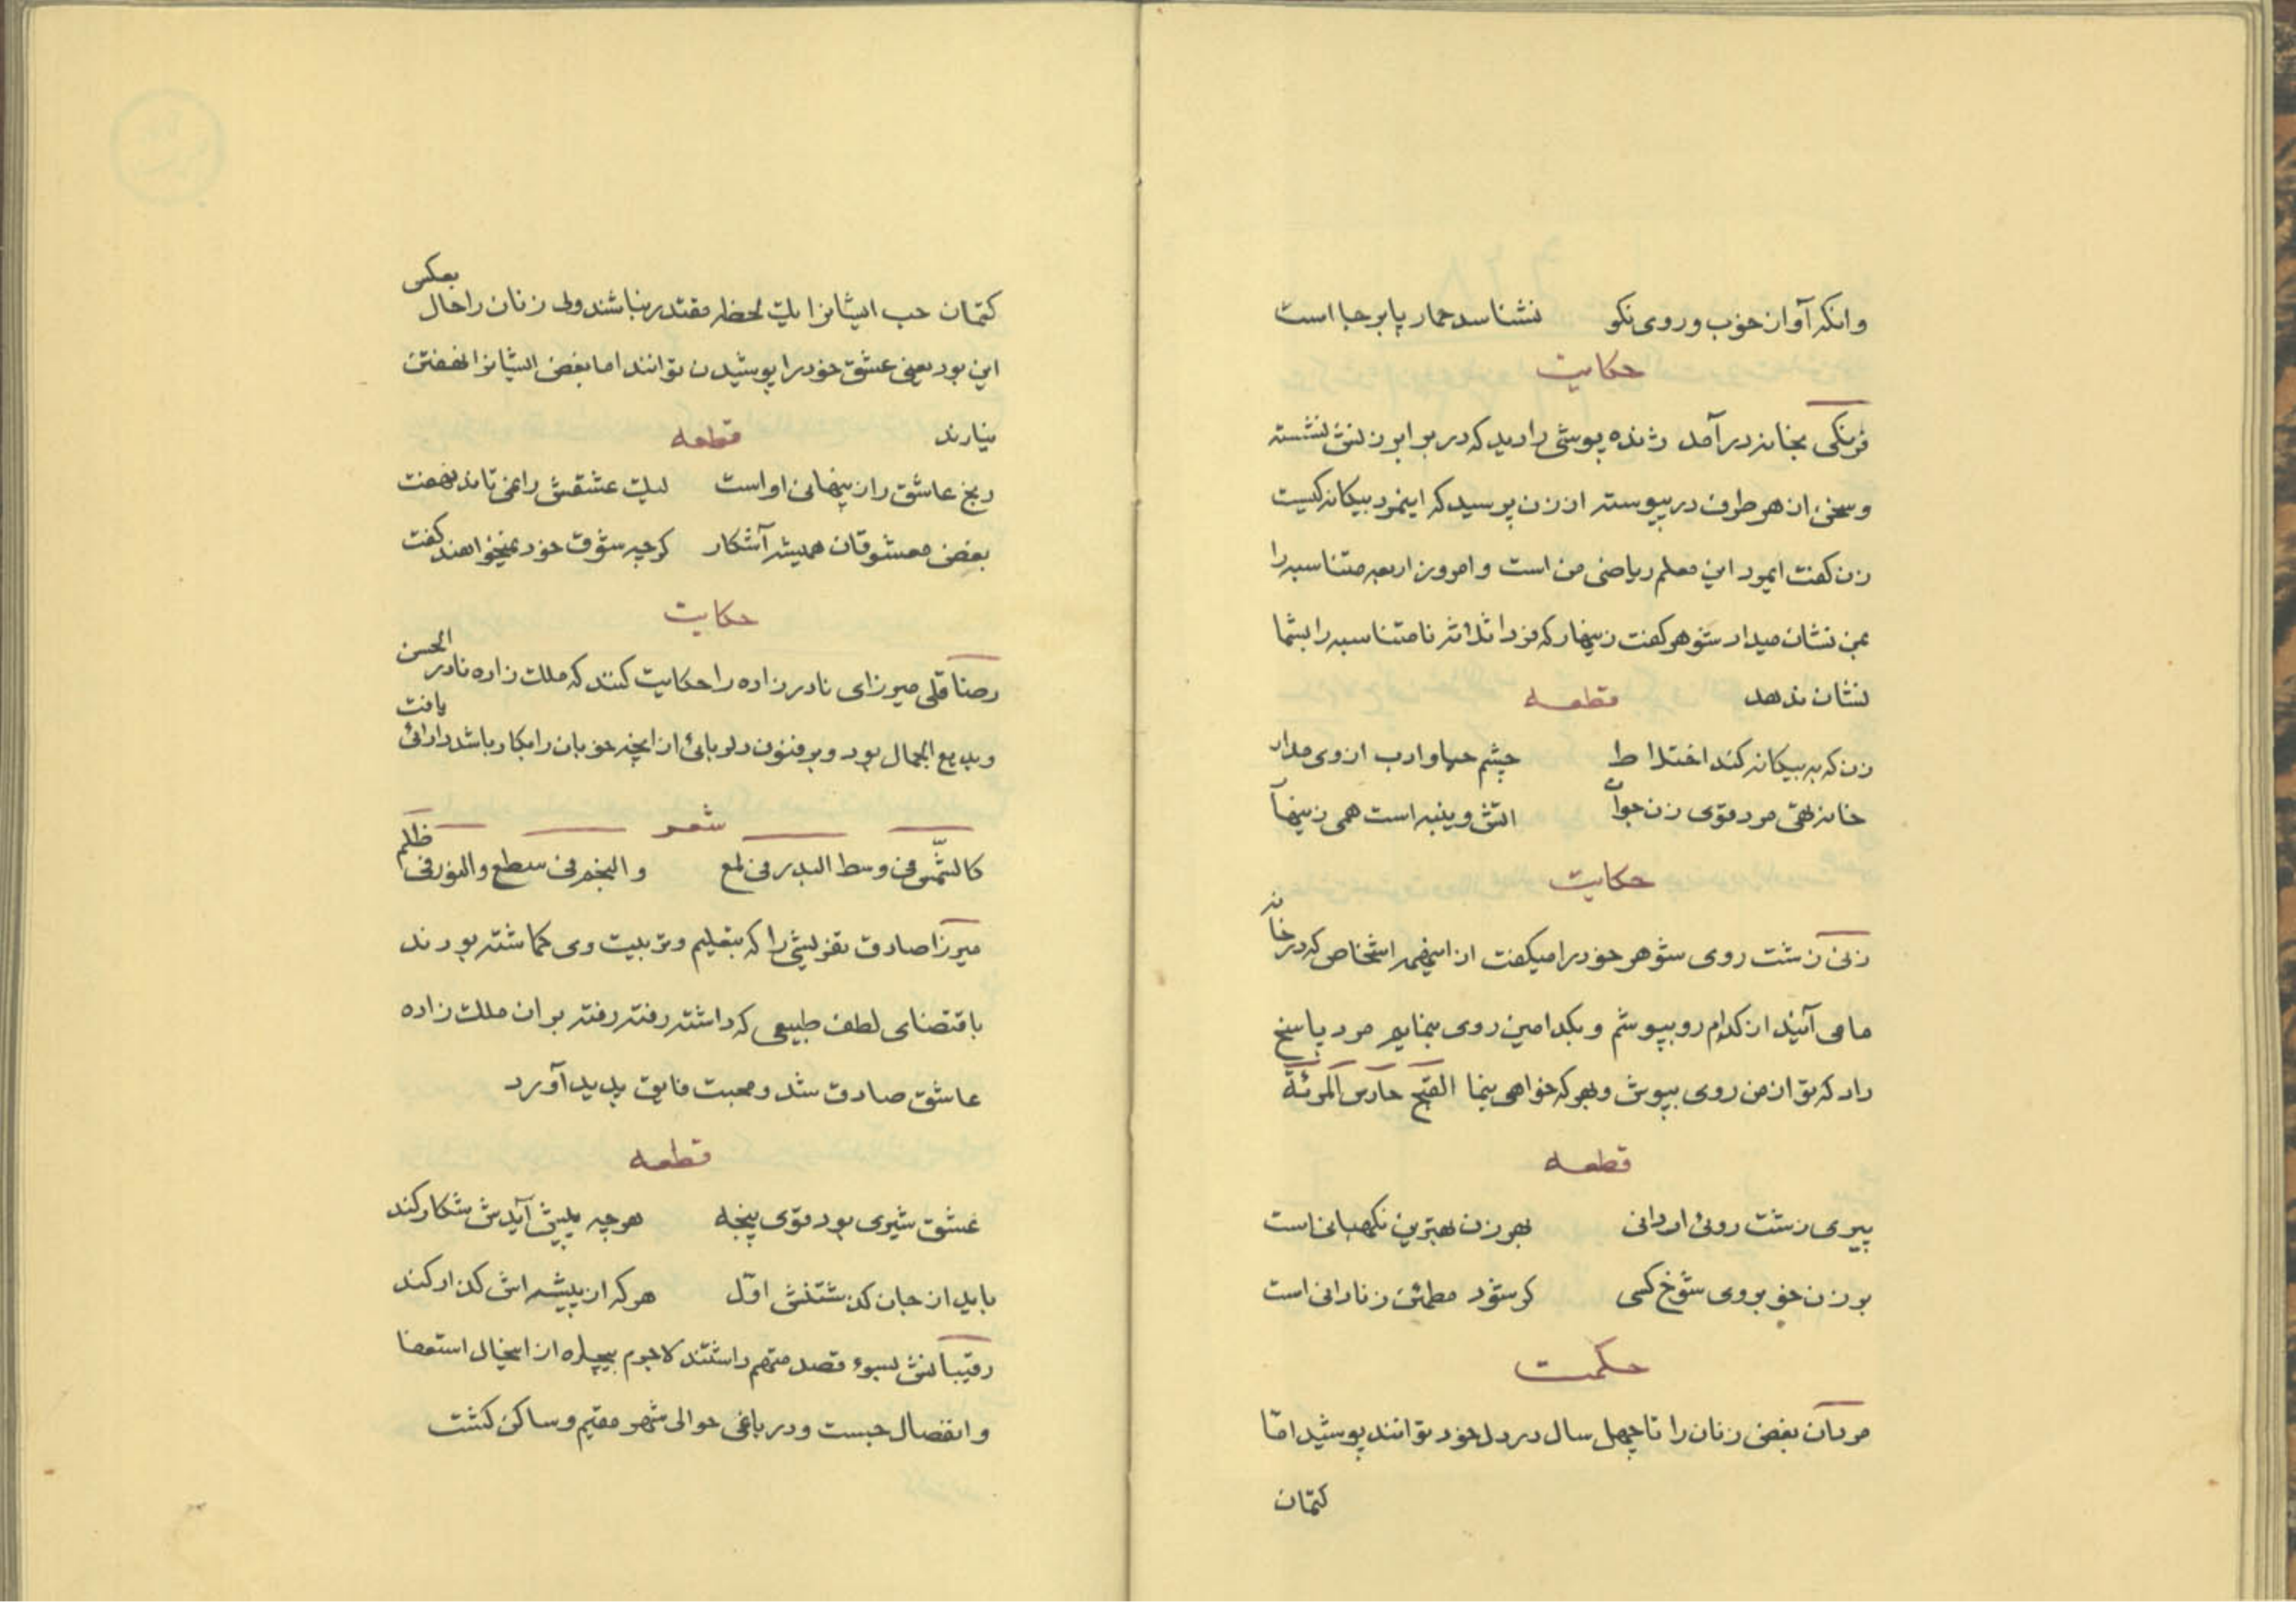 وانکه آواز خوب و روی نکو نشناسد حمار پابرجا است
حکایت
فرنکی بخانه در آمد ژنده پوشی را دید که در برابر زنش نشسته
و سخن از هر طرف در پیوسته از زن پرسید که اینمرد بیکانه کیست
زن کفت ایمرد این معلم ریاضی من است و امروز اربعه متناسبه را
بمن نشان میداد شوهر کفت زینهار که فردا ثلاثه نامتناسبه را بشما
نشان ندهد قطعه
زن که به بیکانه کند اختلاط چشم حیا و ادب از وی مدار
خانه تهی مرد قوی زن جوان اتش و پنبه است همی زینهار
حکایت
زنی زشت روی شوهر خود را میکفت از اینهمه اشخاص که در خانه
ما می آیند از کدام رو بپوشم و بکدامین روی بنمایم مرد پاسخ
داد که تو از من روی بپوش و بهر که خواهی بنما القبح حارس المرئة
قطعه
پیری زشت روئی ار دانی بهر زن بهترین نکهبانی است
بر زن خوبروی شوخ کسی کر شود مطمئن ز نادانی است
حکمت
مردان بغض زنان را تا چهل سال در دل خود توانند پوشید امّا
کتمان
کتمان حب ایشانرا یک لحظه مقتدر نباشند ولی زنان را حال بعکس
این بود یعنی عشق خود را پوشیدن توانند اما بغض ایشانرا نهفتن
نیارند قطعه
رنج عاشق راز پنهانی او است لیک عشقش را نمی تاند نهفت
بغض معشوقان همیشه آشکار کرچه شوق خود نمیخواهند کفت
حکایت
رضاقلی میرزای نادر زاده را حکایت کنند که ملک زاده نادر الحسن
و بدیع الجمال بود و بر فنون دلربائی از انچه خوبان را بکار باشد دارائی یافت
شعر
کالشّمس فی وسط البدر فی لمع و النجم فی سطع والنور فی ظلم
میرزا صادق تفرلیشی را که بتعلیم و تربیت وی کماشته بودند
باقتضای لطف طبیعی که داشته رفته رفته بر ان ملک زاده
عاشق صادق شد و محبت فایق پدید آورد
قطعه
عشق شیری بود قوّی پنجه هر چه پیش آیدش شکار کند
باید از جان کذشتنش اوّل هر که از بیشه اش کذار کند
رقیبانش بسوء قصد متهم داشتند لاجرم بیچاره از انخیال استعفا
و انفصال جست و در باغی حوالی شهر مقیم و ساکن کشت